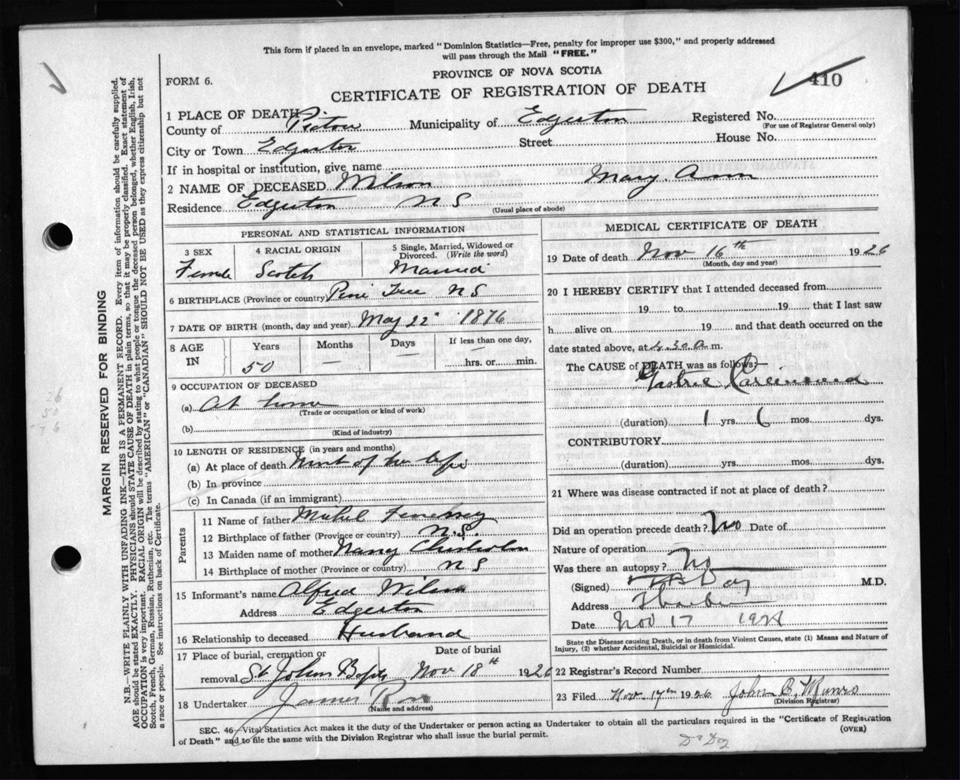 This form if placed in an envelope, marked "Dominion Statistics—Free, penalty for improper use $300," and properly addressed
will pass through the Mail "FREE."
FORM 6.
PROVINCE OF NOVA SCOTIA
410
CERTIFICATE OF REGISTRATION OF DEATH
1 PLACE OF DEATH
County of Pictou Municipality of Edgerton Registered No.
(For use of Registrar General only)
City or Town Edgerton Street House No.
If in hospital or institution, give name
2 NAME OF DECEASED Wilson Mary. Ann
Residence Edgerton N S
(Usual place of abode)
PERSONAL AND STATISTICAL INFORMATION
3 SEX 4 RACIAL ORIGIN 5 Single, Married, Widowed or
Divorced. (Write the word)
Female Scotch Married
6 BIRTHPLACE (Province or country) Pine Tree N S
7 DATE OF BIRTH (month, day and year) May 22 1876
8 AGE IN Years Months Days If less than one day,
50 hrs. or min.
9 OCCUPATION OF DECEASED
(a) At home
(Trade or occupation or kind of work)
(b)
(Kind of industry)
10 LENGTH OF RESIDENCE (in years and months)
(a) At place of death most of her life
(b) In province
(c) In Canada (if an immigrant)
Parents
11 Name of father
12 Birthplace of father (Province or country) N.S.
13 Maiden name of mother Nancy Chisholm
14 Birthplace of mother (Province or country) N S
15 Informant's name Alfred Wilson
Address Edgerton
16 Relationship to deceased Husband
17 Place of burial, cremation or Date of burial
removal St John Nov 18th 1926
18 Undertaker James
(Name and address)
MEDICAL CERTIFICATE OF DEATH
19 Date of death Nov 16th 1926
(Month, day and year)
20 I HEREBY CERTIFY that I attended deceased from
19 to 19 that I last saw
h alive on 19 and that death occurred on the
date stated above, at 4.30 a m.
The CAUSE OF DEATH was as follows:
Gastric Carcinoma
(duration) 1 yrs 6 mos. dys.
CONTRIBUTORY
(duration) yrs. mos. dys.
21 Where was disease contracted if not at place of death?
Did an operation precede death? No Date of
Nature of operation
Was there an autopsy? No
(Signed) Day M.D.
Address
Date Nov 17
State the Disease causing Death, or in death from Violent Causes, state (1) Means and Nature of
Injury, (2) whether Accidental, Suicidal or Homicidal.
22 Registrar's Record Number
23 Filed Nov 17th 1926 John C. Munro
(Division Registrar)
SEC. 46—Vital Statistics Act makes it the duty of the Undertaker or person acting as Undertaker to obtain all the particulars required in the "Certificate of Registration
of Death" and to file the same with the Division Registrar who shall issue the burial permit.
(OVER)
Dr Day
MARGIN RESERVED FOR BINDING
N.B.—WRITE PLAINLY WITH UNFADING INK—THIS IS A PERMANENT RECORD. Every item of information should be carefully supplied.
AGE should be stated EXACTLY. PHYSICIANS should STATE CAUSE OF DEATH in plain terms, so that it may be properly classified. Exact statement of
OCCUPATION is very important. RACIAL ORIGIN will be described by stating to what people or tongue the deceased person belonged, whether English, Irish,
Scotch, French, German, Russian, Ruthenian, etc. The terms "AMERICAN" or "CANADIAN" SHOULD NOT BE USED as they express citizenship but not
a race or people. See instructions on back of Certificate.
26
50
76